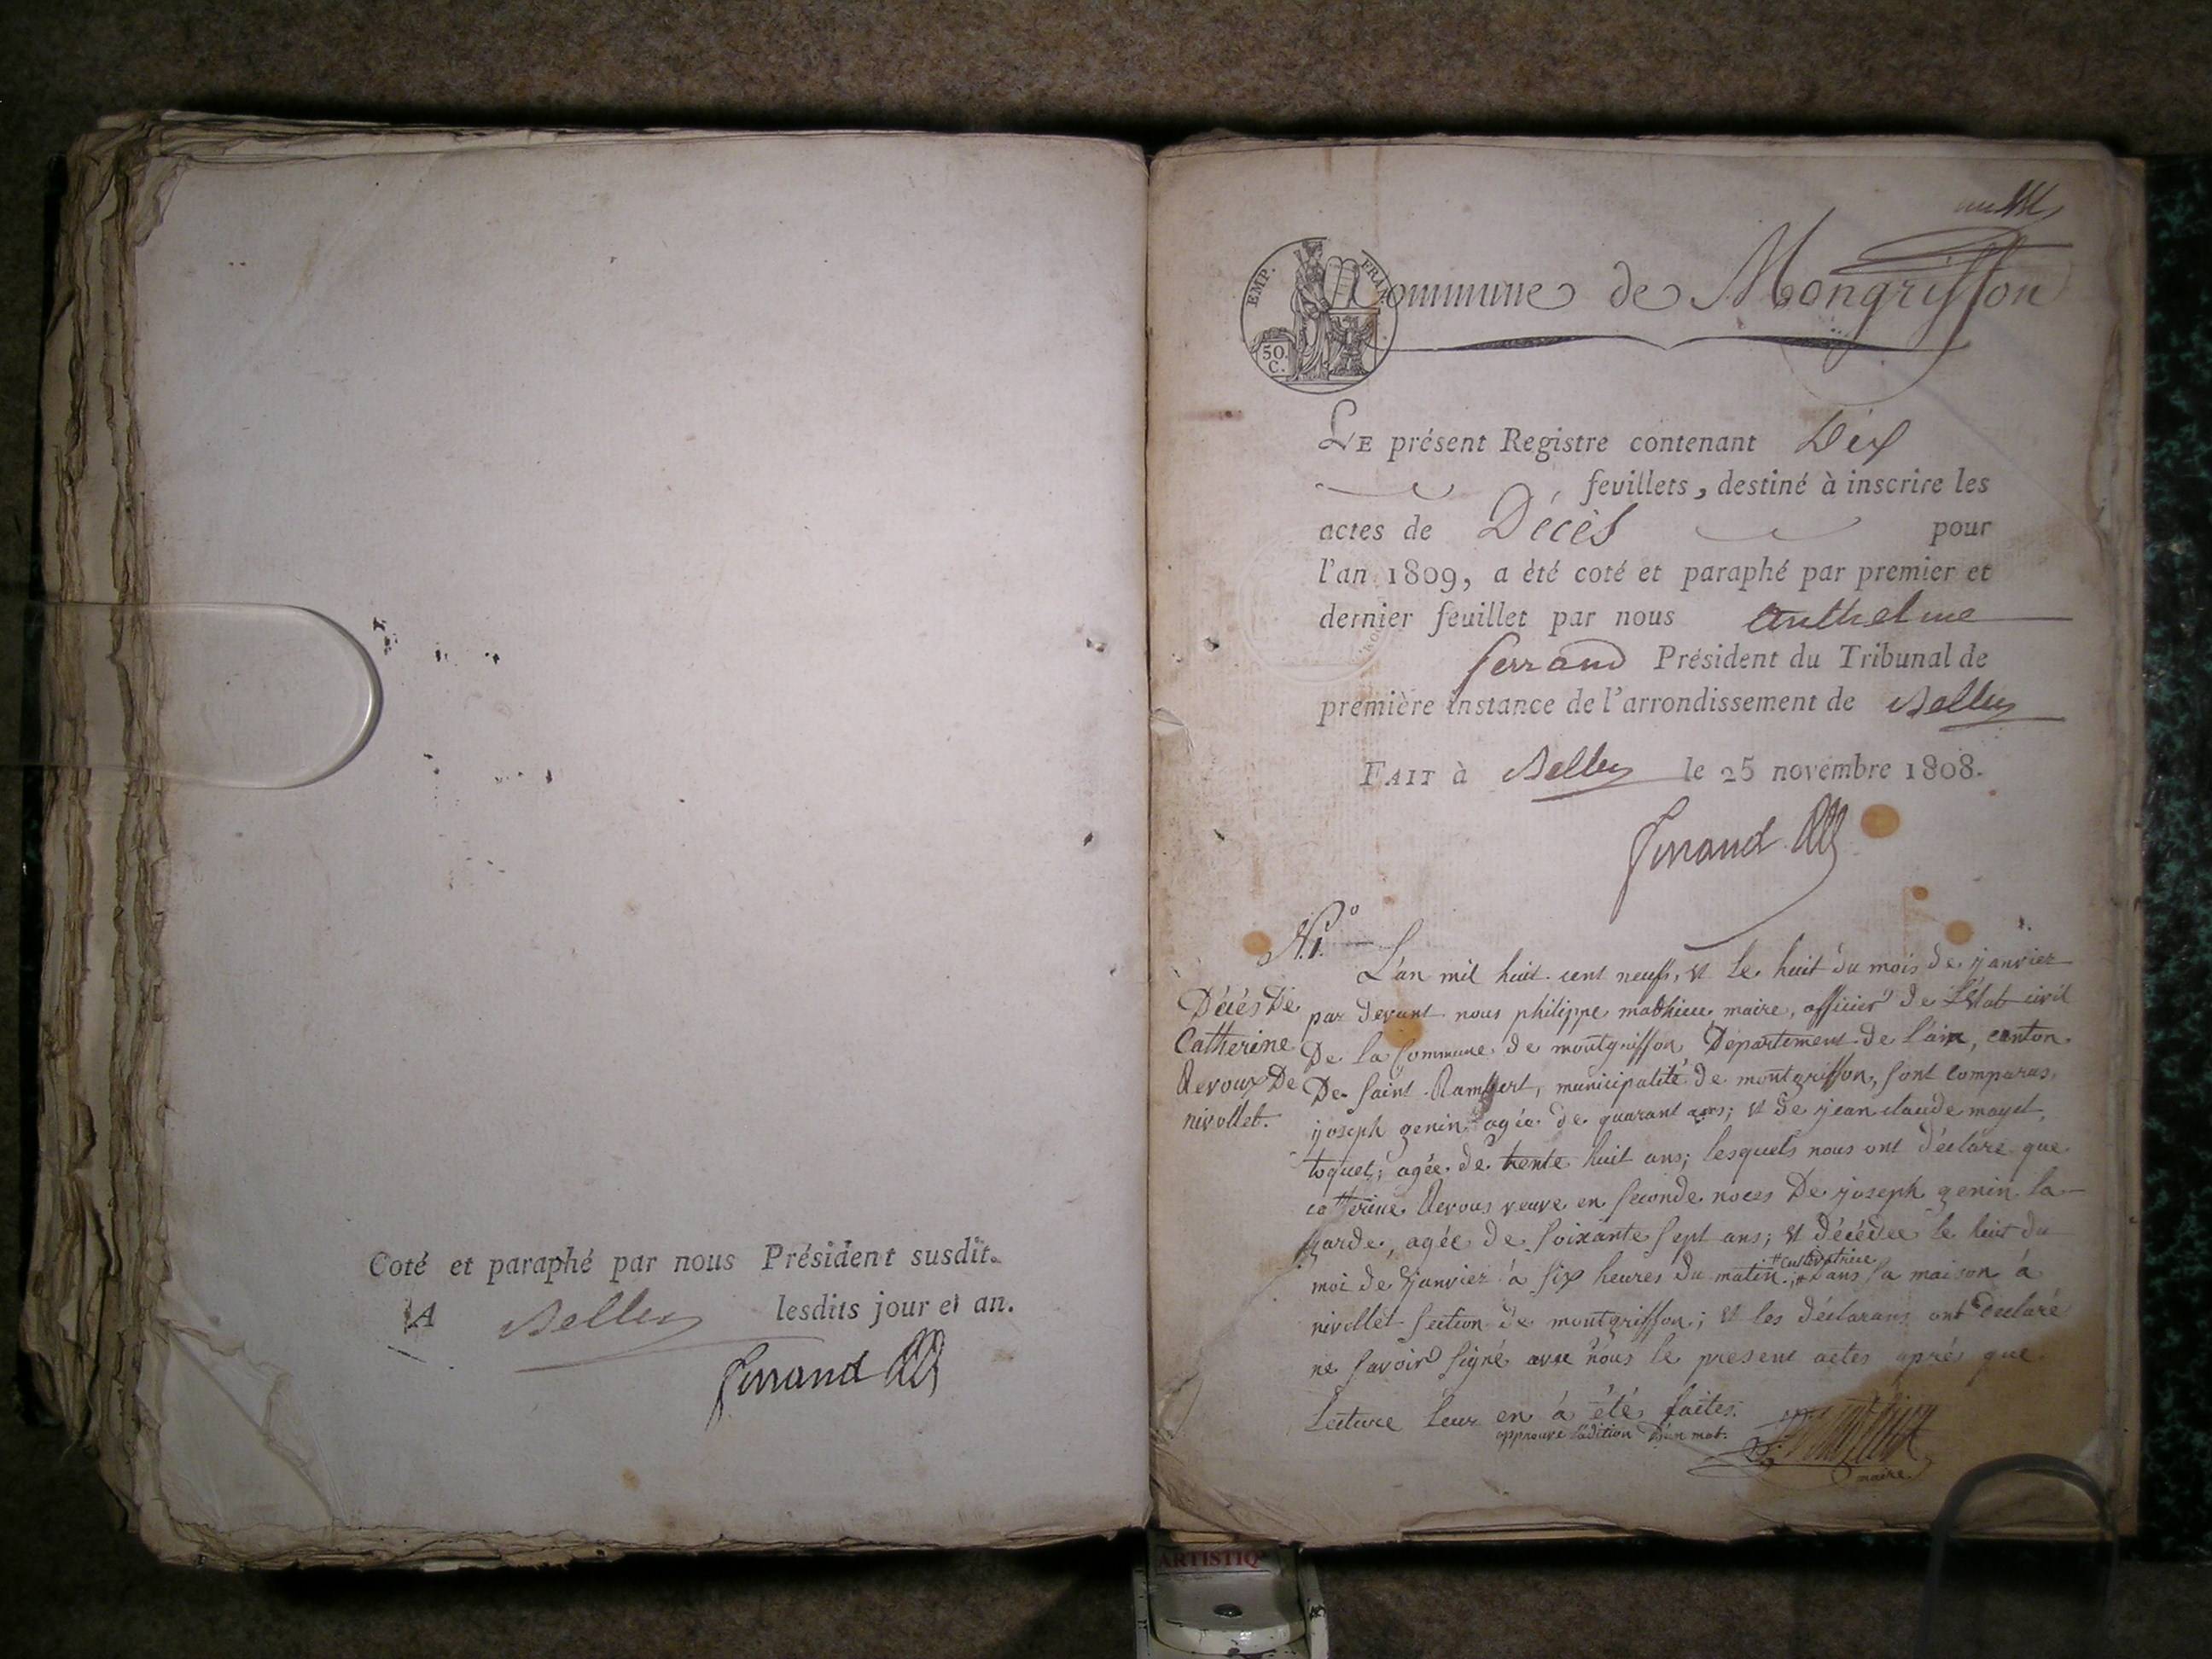 Coté et paraphé par nous Président susdit.
A Belley lesdits jour et an.
Ferrand
EMP. FRA
50.
C.
Commune de Mongriffon
LE présent Registre contenant Dix
feuillets, destiné à inscrire les
actes de Décès pour
l'an 1809, a été coté et paraphé par premier et
dernier feuillet par nous Anthelme
ferrand Président du Tribunal de
première instance de l'arrondissement de Belley
FAIT à Belley le 25 novembre 1808.
Ferrand
N.º 1.
Décès De
Catherine
Revoux De
nivollet.
L'an mil huit cent neuf, et le huit du mois de janvier
par devant nous philippe mathieu maire, officier de l'Etat civil
De la Commune de montgriffon Département de l'ain, canton
De Saint Rambert, municipalité de montgriffon, sont comparus,
joseph genin agée de quarant ans; et de jean claude mayet
toquet; agée de trente huit ans; lesquels nous ont déclare que
catherine Revous veuve en seconde noces De joseph genin la
garde, agée de soixante sept ans; et décédée le huit du
moi de janvier à six heures du matin # dans sa maison à
# Cultivatrice
nivollet section de montgriffon; et les déclarans ont déclaré
ne savoir signé avec nous le present actes après que
Lecture leur en à été faites.
approuve l'adition d'un mot.
maire
ARTISTIQ